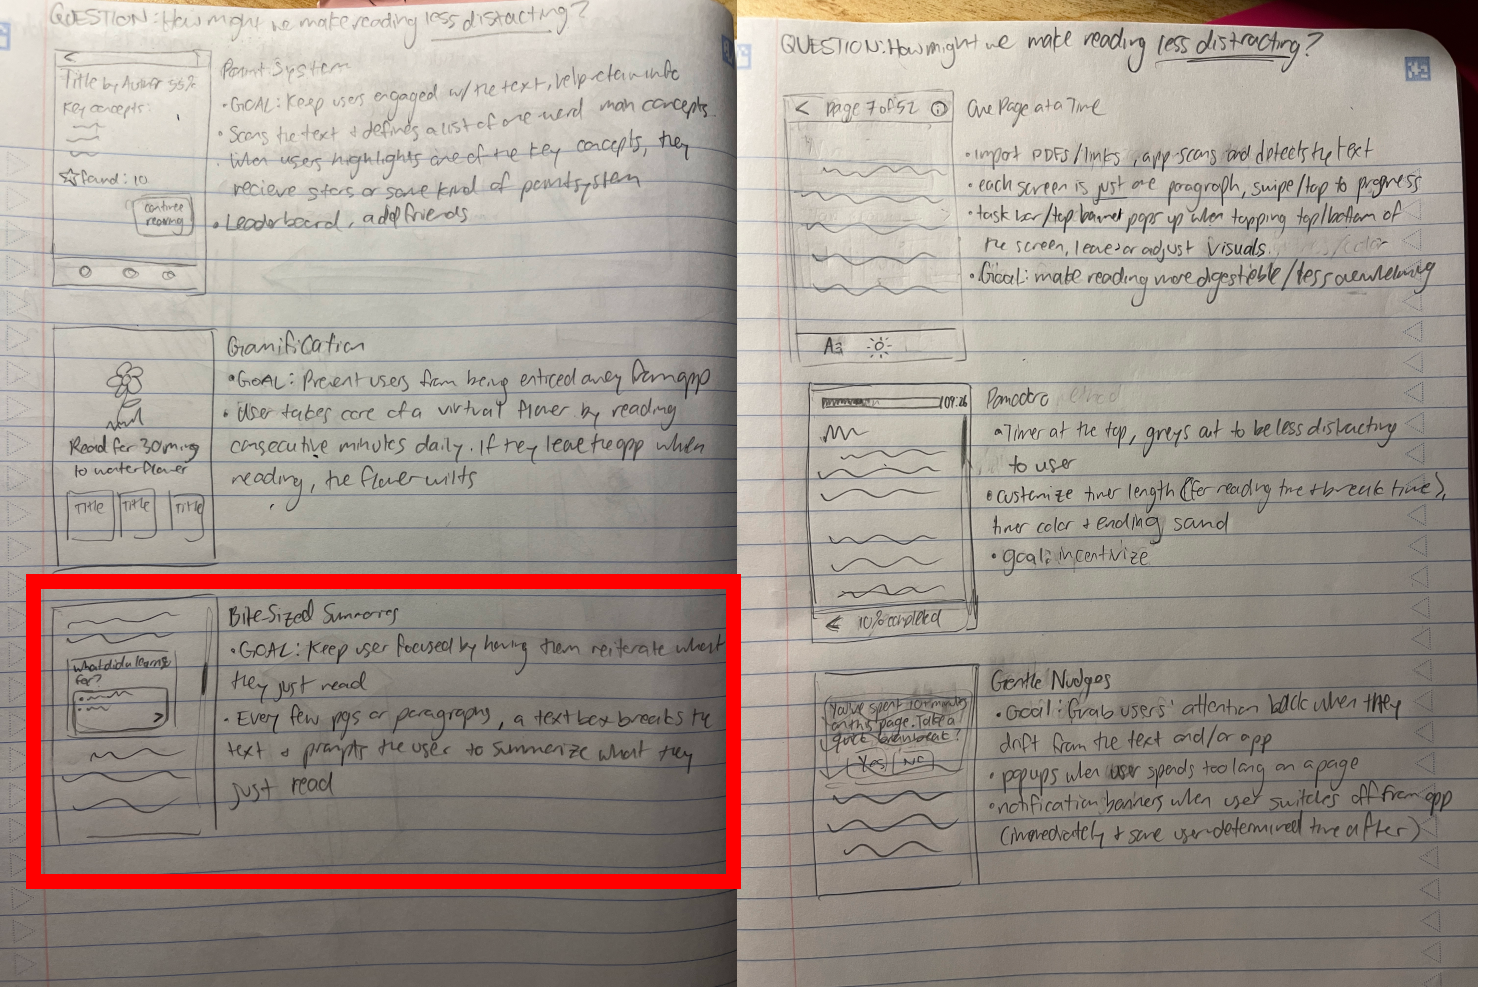 QUESTION: How might we make reading less distracting?
<
Title by Author 55%
Key concepts:
found: 10
continue
reading
Point System
• GOAL: Keep users engaged w/ the text, help retain info
• Scans the text + defines a list of one word main concepts.
• When users highlights one of the key concepts, they
recieve stars or some kind of point system
• Leaderboard, add friends
Read for 30 mins
to water flower
Title Title Title
Gamification
• GOAL: Prevent users from being enticed away from app
• User takes care of a virtual flower by reading
consecutive minutes daily. If they leave the app when
reading, the flower wilts
what did u learn so
far?
>
Bite Sized Summaries
• GOAL: Keep user focused by having them reiterate what
they just read
• Every few pgs or paragraphs, a text box breaks the
text + prompts the user to summarize what they
just read
QUESTION: How might we make reading less distracting?
< page 7 of 52
A
One Page at a Time
• import PDFs/links, app scans and detects the text
• each screen is just one paragraph, swipe/tap to progress
• task bar/top banner pops up when tapping top/bottom of
the screen, leave or adjust visuals.
• Goal: make reading more digestible/less overwhelming
09:26
< 10% completed
Pomodoro
• Timer at the top, greys out to be less distracting
to user
• customize timer length (for reading time + break time),
timer color + ending sound
• goal: incentivize
You've spent 10 minutes
on this page. Take a
quick brain break?
Yes No
Gentle Nudges
• Goal: Grab users' attention back when they
drift from the text and/or app
• popups when user spends too long on a page
• notification banners when user switches off from app
(immediately + some user-determined time after)